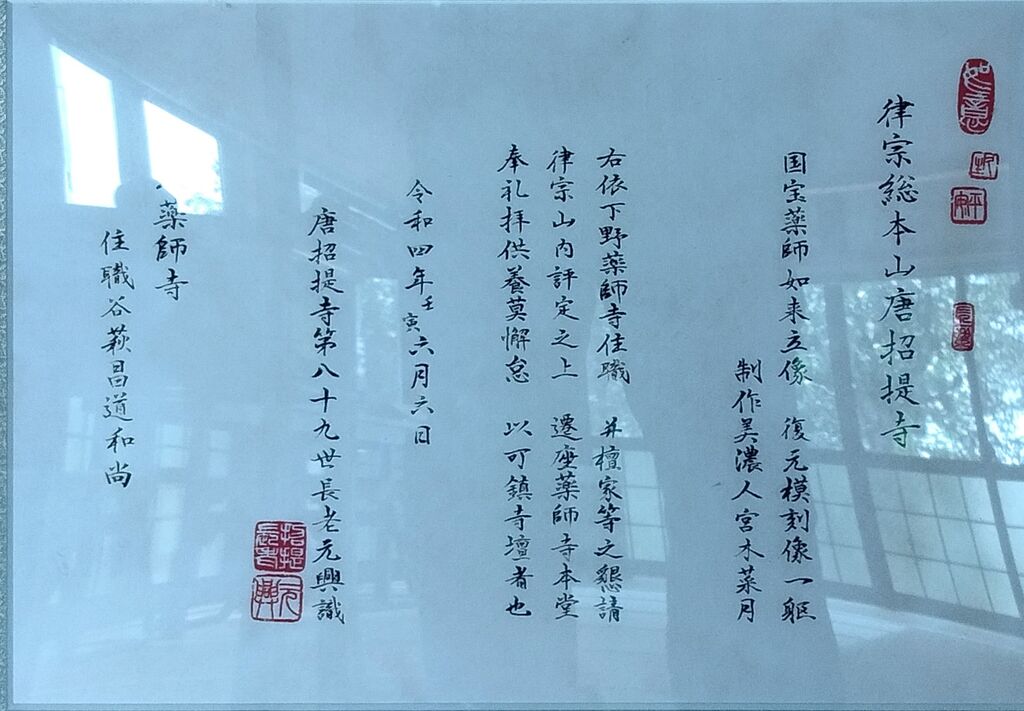 律宗総本山唐招提寺
国宝薬師如来立像　復元模刻像一躯
制作美濃人宮木菜月
右依下野薬師寺住職　并檀家等之懇請
律宗山内評定之上　遷座薬師寺本堂
奉礼拝供養莫懈怠　以可鎮寺壇者也
令和四年壬寅六月六日
唐招提寺第八十九世長老元興識
薬師寺
住職谷萩昌道和尚
如意
招提
元興